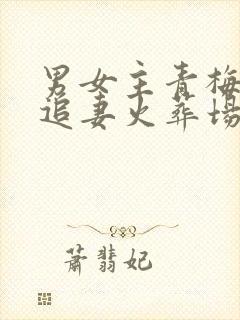 男女主青梅
追妻火葬場
萧翡妃